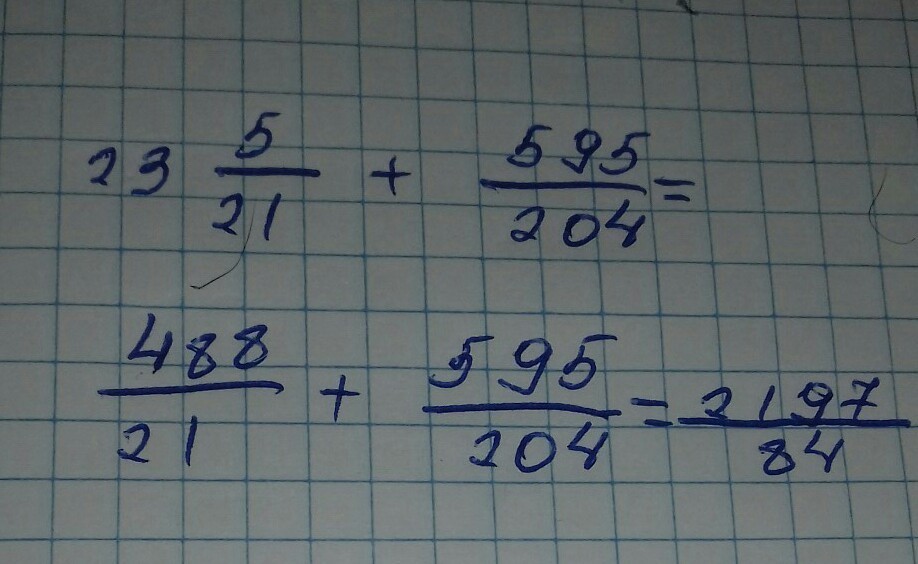 23 5/21 + 595/204 =
488/21 + 595/204 = 2197/84